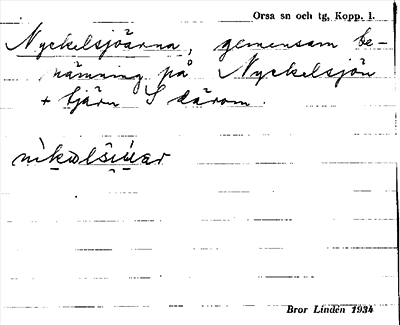 Orsa sn och tg, Kopp. l.
Nyckelsjöarna, gemensam be-
nämning på Nyckelsjön
+ tjärn S därom.
Bror Lindén 1934